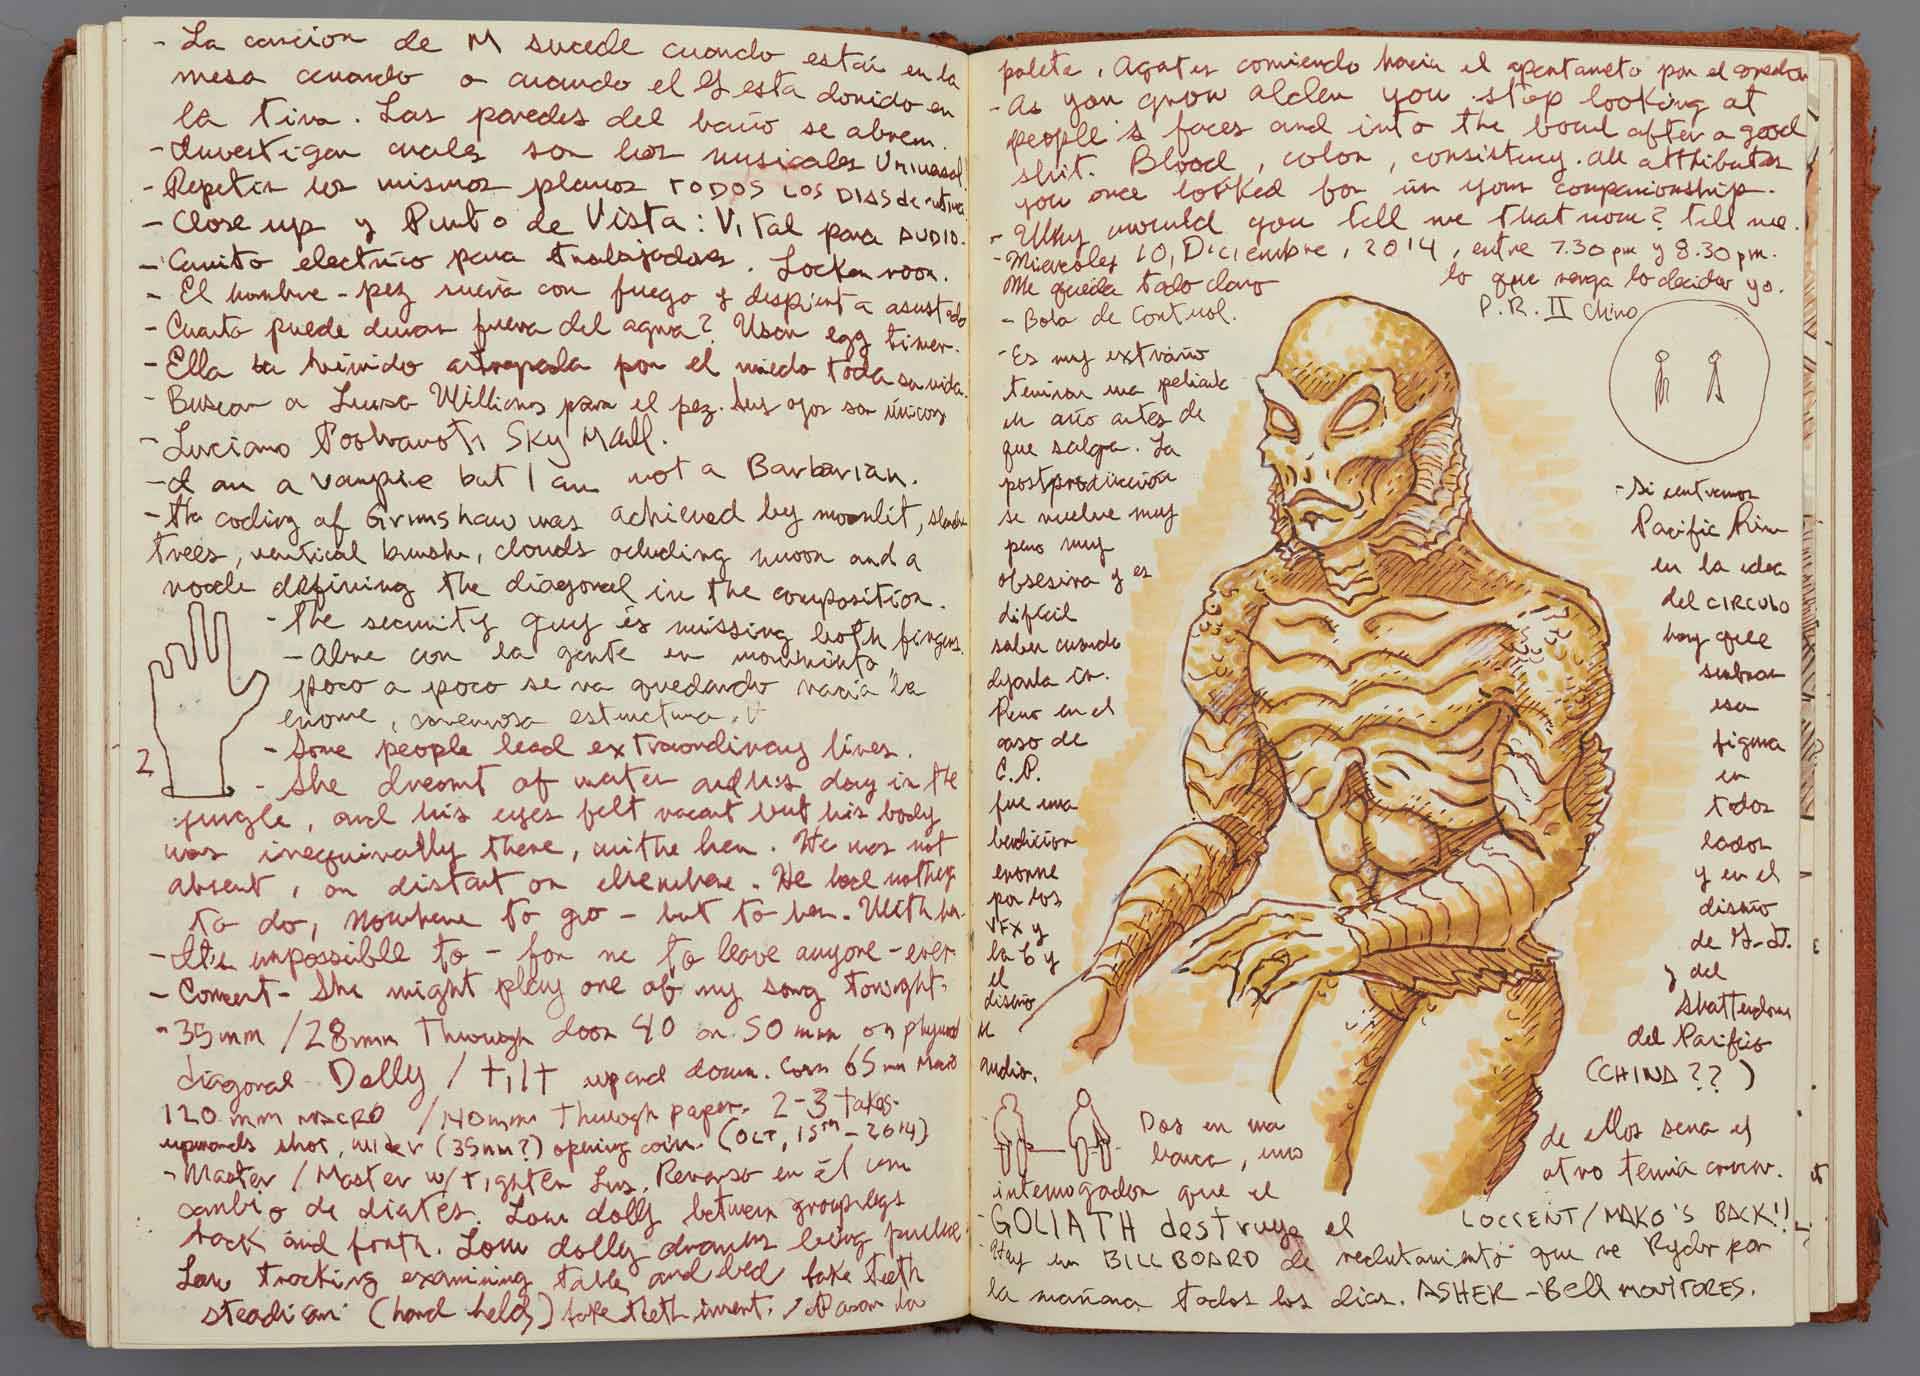 - La cancion de M sucede cuando están en la
mesa cuando o cuando el G esta dormido en
la tina. Las paredes del baño se abren.
- Investigar cuales son los musicales Universal
- Repetir los mismos planos TODOS LOS DIAS de rutina
- Close up y Punto de Vista: Vital para AUDIO.
- Carrito electrico para trabajadores. Locker room.
- El hombre-pez sueña con fuego y despierta asustado
- Cuanto puede durar fuera del agua? Usan egg timer.
- Ella ha vivido atrapada por el miedo toda su vida.
- Buscar a para el pez. Sus ojos son únicos
- Luciano SKY MALL.
- I am a vampire but I am not a Barbarian.
- The coding of Grimshaw was achieved by moonlit, slender
trees, vertical brushes, clouds ocluding moon and a
defining the diagonal in the composition.
- The security guy is missing both fingers.
- Abre con la gente en movimiento,
poco a poco se va quedando vacia la
enorme, estructura.
2
- Some people lead extraordinary lives.
- She dreamt of water and his day in the
jungle, and his eyes felt vacant but his body
was there, with her. He was not
absent, or distant or elsewhere. He had nothing
to do, nowhere to go - but to her. With her
- It's impossible to - for me to leave anyone - ever
- Concert - She might play one of my song tonight.
- 35mm / 28mm Through door 40 or 50 mm on
diagonal Dolly / tilt up and down. 65 mm Macro
120 mm MACRO / 140mm Through paper. 2-3 takes.
upwards shot, wider (35mm?) opening coin. (OCT, 15TH - 2014)
- Master / Master w/ tighter lens. Reverso en él con
cambio de Low dolly between group legs
back and forth. Low dolly drawer being
Low tracking examining table and bed fake teeth
steadicam (hand held) fake teeth
palete. comiendo hacia el por el
- As you grow older you stop looking at
people's faces and into the bowl after a good
shit. Blood, color, consistency. all attributes
you once looked for in your companionship.
- Why would you tell me that now? tell me.
- Miercoles 10, Diciembre, 2014, entre 7.30 pm y 8.30 pm.
Me queda todo claro lo que venga lo decidor yo.
- Bola de Control. P.R. II Chino
- Es muy extraño
terminar una pelicula
un año antes de
que salga. La
postproducción
se vuelve muy
pero muy
obsesiva y es
dificil
saber cuando
dejarla ir.
Pero en el
caso de
C.P.
fue una
bendicion
enorme
por los
VFX y
la y
el
diseño
audio.
- Si centramos
Pacific Rim
en la idea
del CIRCULO
hay que
sembrar
esa
figura
en
todos
lados
y en el
diseño
de
y del
Shatterdome
del Pacifico
(CHINA ??)
Dos en una
banca, uno
de ellos sera el
otro
interrogador que el
LOCCENT / MAKO'S BACK!!
- GOLIATH destruye el
- Hay un BILLBOARD de reclutamiento que ve Ryder por
la mañana todos los dias. ASHER - Bell MONITORES.